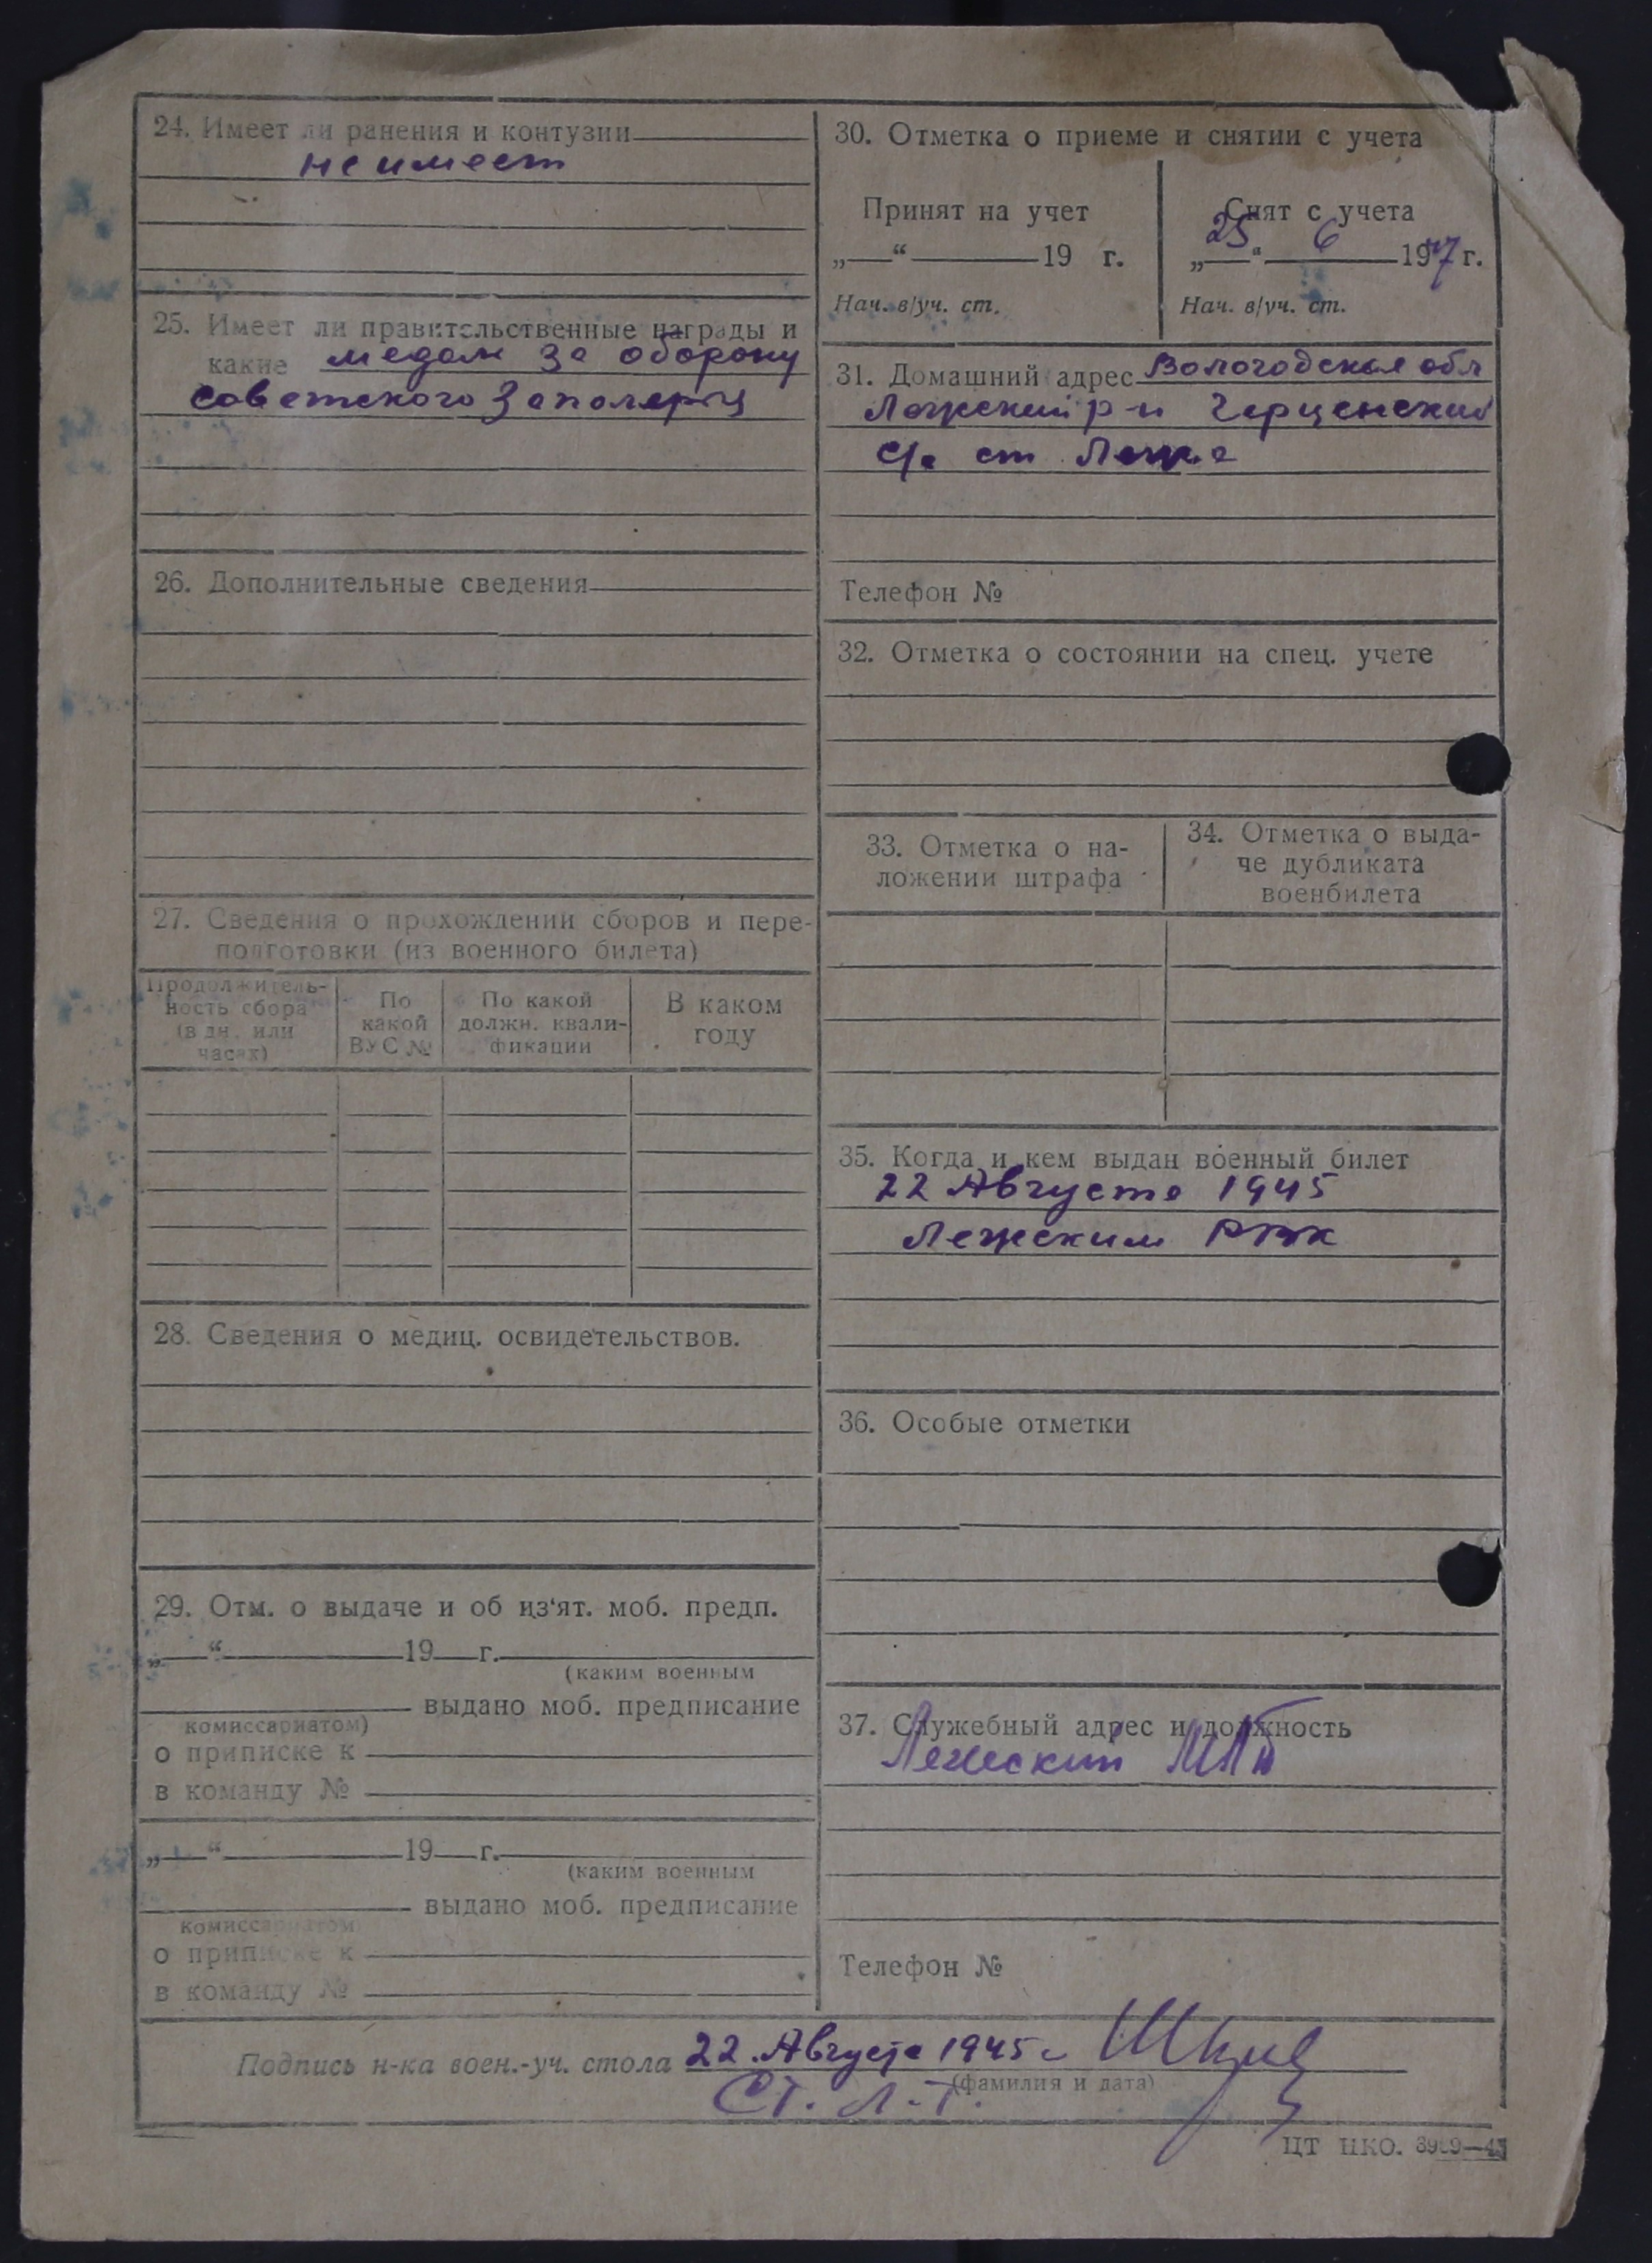 24. Имеет ли ранения и контузии
не имеет
25. Имеет ли правительственные награды и
какие медаль за оборону
Советского Заполярья
26. Дополнительные сведения
27. Сведения о прохождении сборов и пере-
подготовки (из военного билета)
Продолжитель-
ность сбора
(в дн. или
часах)
По
какой
ВУС №
По какой
должн. квали-
фикации
В каком
году
28. Сведения о медиц. освидетельствов.
29. Отм. о выдаче и об из‘ят. моб. предп.
„ “ 19 г.
(каким военным
выдано моб. предписание
комиссариатом)
о приписке к
в команду №
„ “ 19 г.
(каким военным
выдано моб. предписание
комиссариатом
о приписке к
в команду №
30. Отметка о приеме и снятии с учета
Принят на учет
„ “ 19 г.
Нач. в/уч. ст.
Снят с учета
„25“ 6 1947 г.
Нач. в/уч. ст.
31. Домашний адрес Вологодская обл
Лежский р-н
с/с ст Лежа
Телефон №
32. Отметка о состоянии на спец. учете
33. Отметка о на-
ложении штрафа
34. Отметка о выда-
че дубликата
военбилета
35. Когда и кем выдан военный билет
22 Августа 1945
Лежским РВК
36. Особые отметки
37. Служебный адрес и должность
Лежский
Телефон №
Подпись н-ка воен.-уч. стола 22 Августа 1945 г
(фамилия и дата)
Ст. Л-т.
ЦТ НКО.